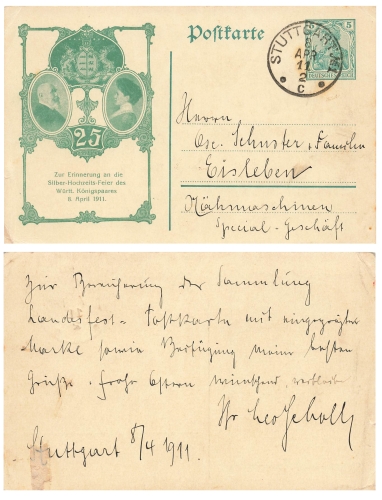 Postkarte
5
DEUTSCHES REICH
STUTTGART
8
APR
11
2
C
25
Zur Erinnerung an die
Silber-Hochzeits-Feier des
Württ. Königspaares
8. April 1911.
Herrn
Osc. Schuster & Familie
Eisleben
Nähmaschinen
Special-Geschäft
Zur Bereicherung der Sammlung
Landesfest-Postkarte mit eingeprägter
Marke sowie Beifügung meiner besten
Grüße. Frohe Ostern wünschend, verbleibt
Ihr Leo
Stuttgart 8/4 1911.